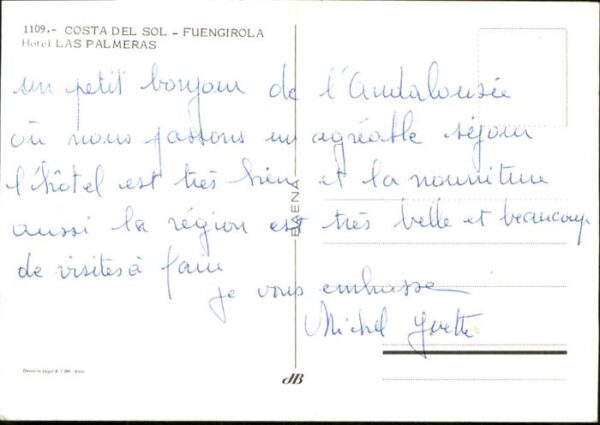 1109.- COSTA DEL SOL - FUENGIROLA
Hotel LAS PALMERAS
un petit bonjour de l'Andalousie
où nous passons un agréable séjour
l'hôtel est très bien et la nourriture
aussi la région est très belle et beaucoup
de visites à faire
je vous embrasse
Michel Yvette
BAENA
JB